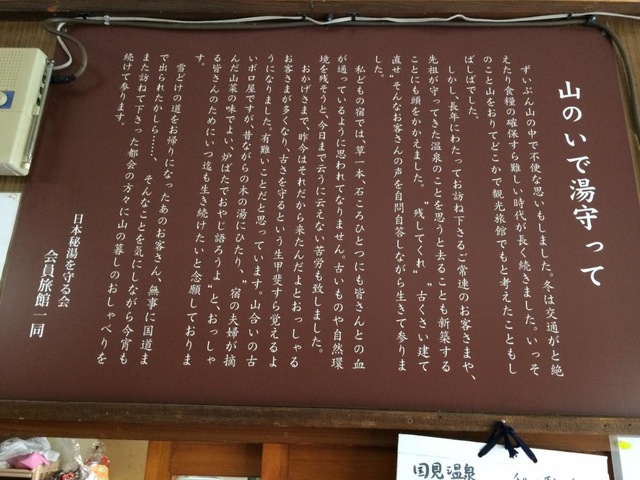 山のいで湯守って
ずいぶん山の中で不便な思いもしました。冬は交通がと絶
えたり食糧の確保すら難しい時代が長く続きました。いっそ
のこと山をおりてどこかで観光旅館でもと考えたこともし
ばしばでした。
しかし、長年にわたってお訪ね下さるご常連のお客さまや、
先祖が守ってきた温泉のことを思うと去ることも新築する
ことにも頭をかかえました。〝残してくれ〟〝古くさい建て
直せ〟そんなお客さんの声を自問自答しながら生きて参りま
した。
私どもの宿では、草一本、石ころひとつにも皆さんとの血
が通っているように思われてなりません。古いものや自然環
境を残そうと、今日まで云うに云えない苦労も致しました。
おかげさまで、昨今はそれだから来たんだよとおっしゃる
お客さまが多くなり、古さを守るという生甲斐すら覚えるよ
うになりました。有難いことだと思っています。山合いの古
いボロ屋ですが、昔ながらの木の湯にひたり、〝宿の夫婦が摘
んだ山菜の味でよい、炉ばたでおやじ語ろうよ〟と、おっしゃ
る皆さんのためにいつ迄も生き続けたいと念願しておりま
す。
雪どけの道をお帰りになったあのお客さん、無事に国道ま
で出られたかしら……、そんなことを気にしながら今宵も
また訪ねて下さった都会の方々に山の暮しのおしゃべりを
続けて参ります。
日本秘湯を守る会
会員旅館一同
国見温泉